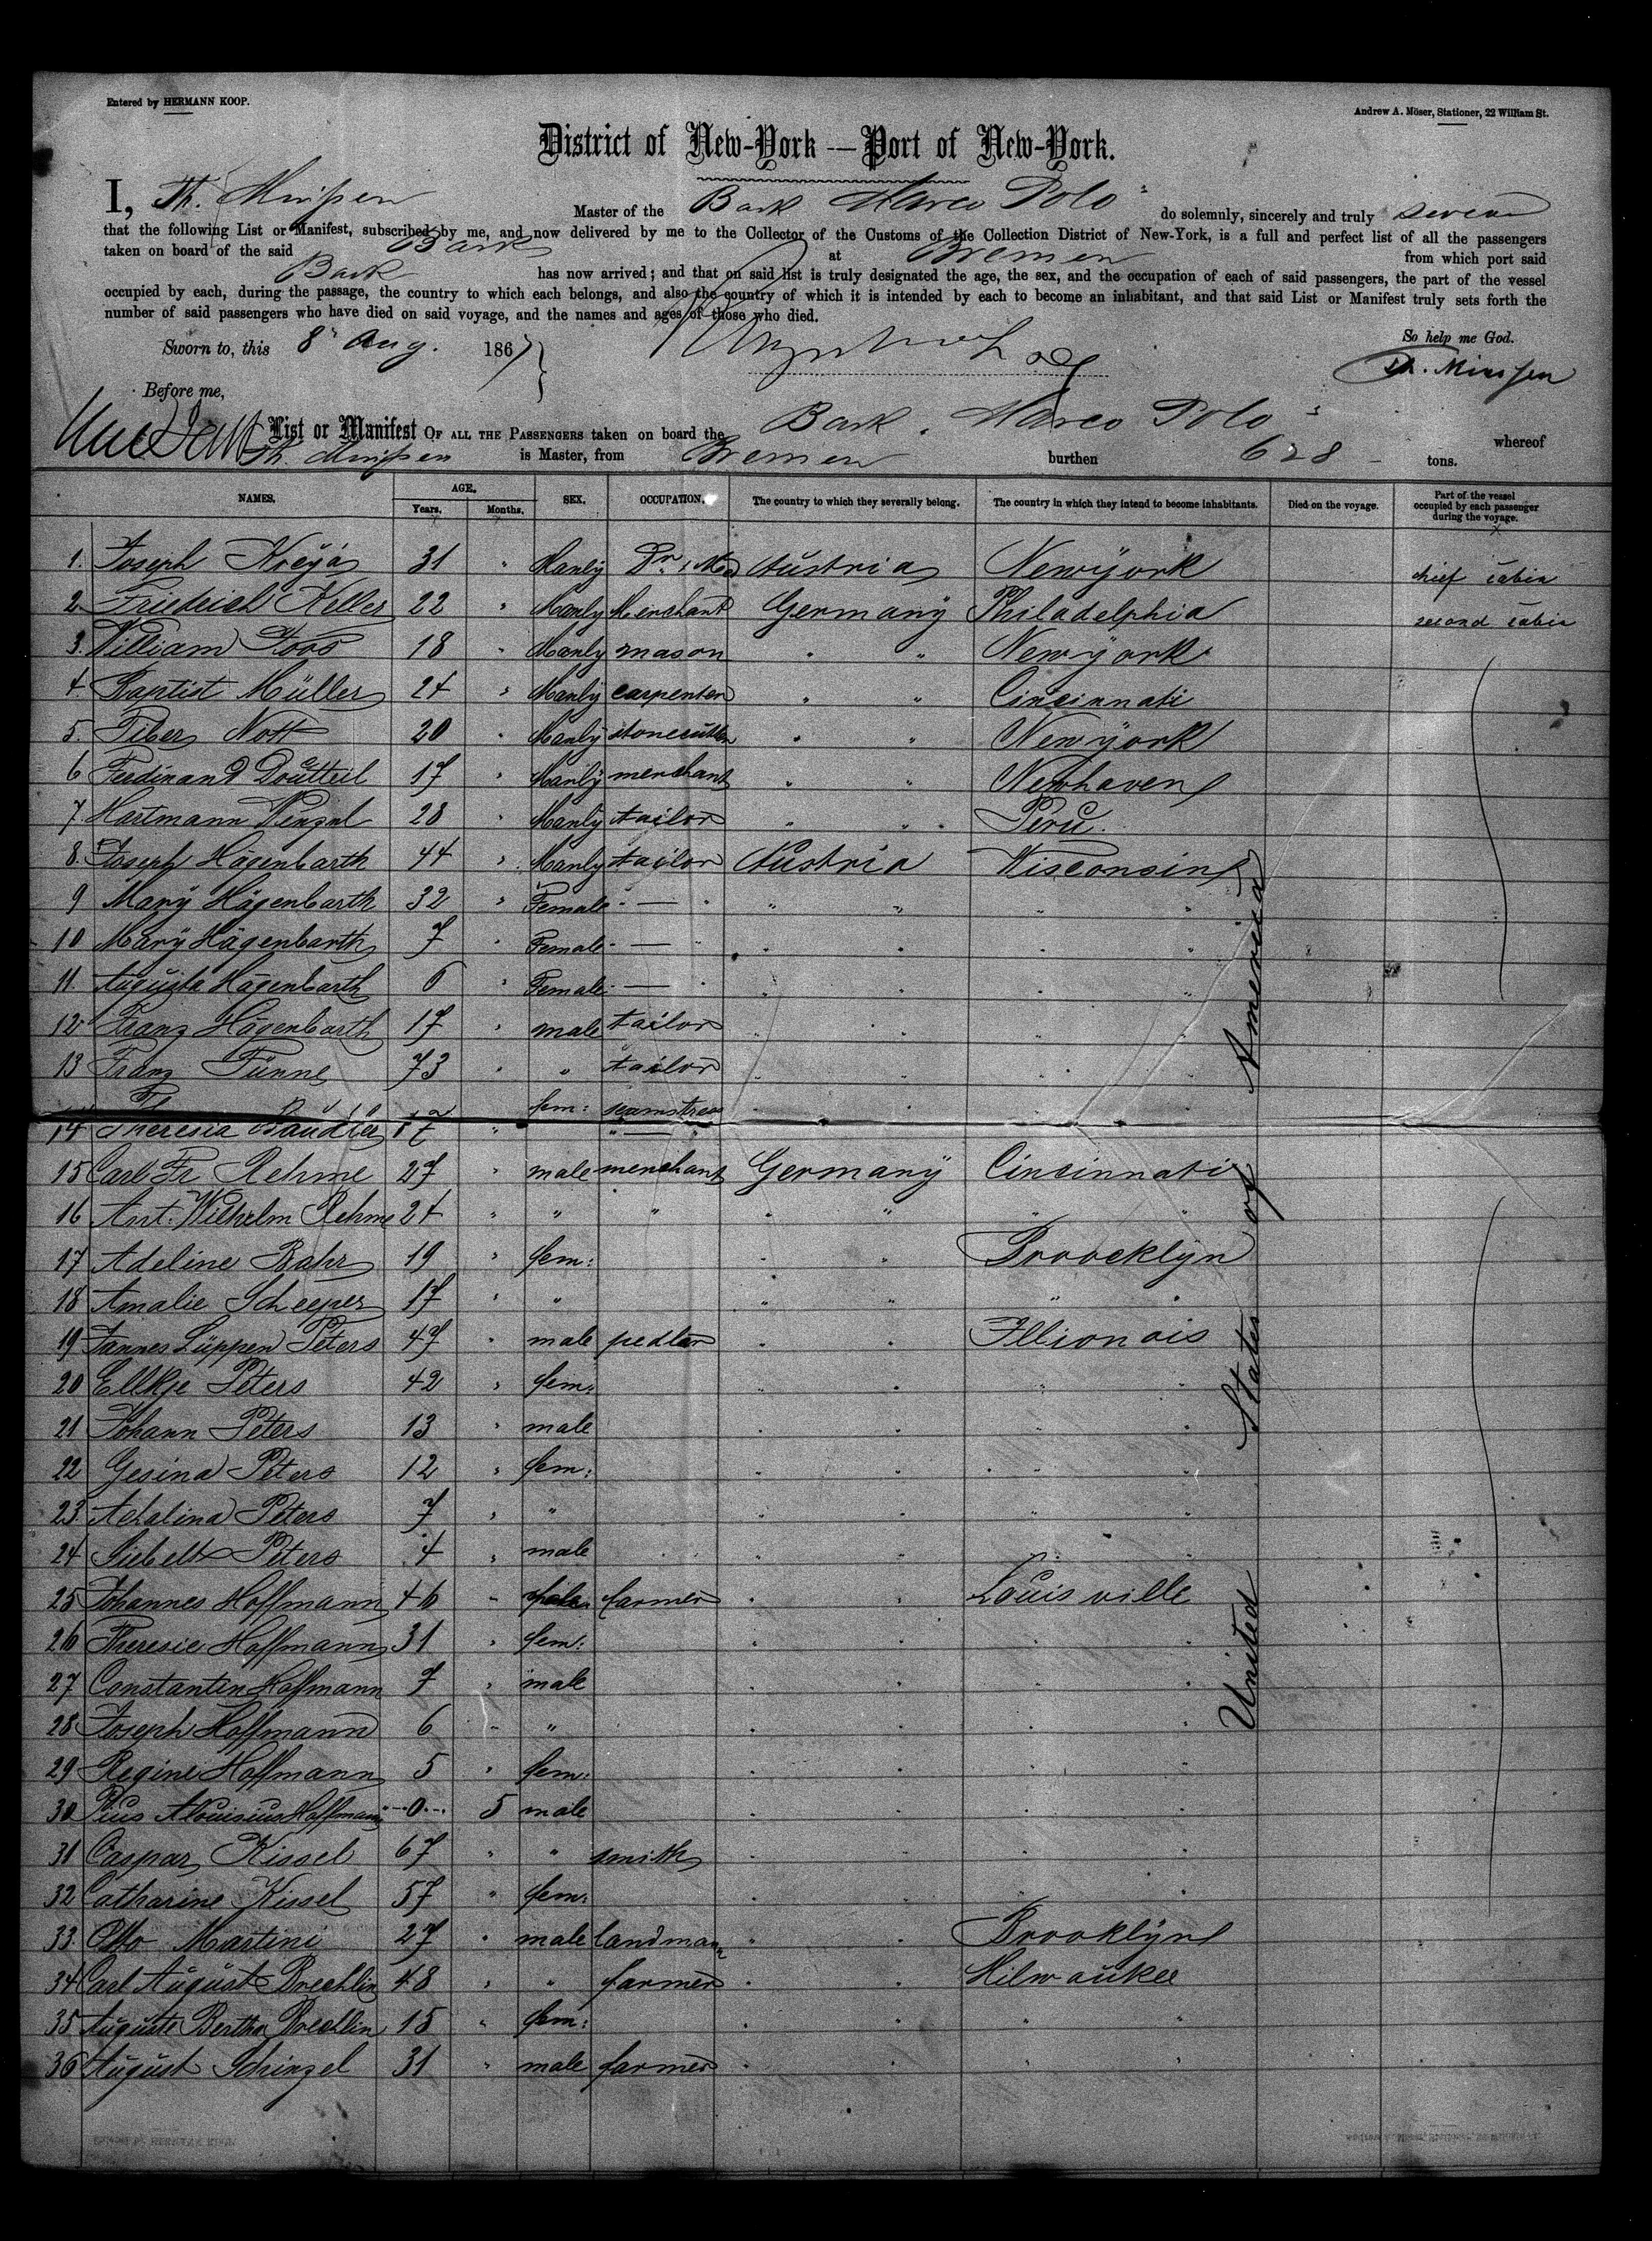 Entered by HERMANN KOOP.
Andrew A. Möser, Stationer, 22 William St.
District of New-York — Port of New-York.
I, Th. Minssen Master of the Bark Marco Polo" do solemnly, sincerely and truly swear
that the following List or Manifest, subscribed by me, and now delivered by me to the Collector of the Customs of the Collection District of New-York, is a full and perfect list of all the passengers
taken on board of the said Bark at Bremen from which port said
Bark has now arrived; and that on said list is truly designated the age, the sex, and the occupation of each of said passengers, the part of the vessel
occupied by each, during the passage, the country to which each belongs, and also the country of which it is intended by each to become an inhabitant, and that said List or Manifest truly sets forth the
number of said passengers who have died on said voyage, and the names and ages of those who died.
So help me God.
Sworn to, this 8" Aug. 1867
Th. Minssen
Before me,
List or Manifest OF ALL THE PASSENGERS taken on board the Bark "Marco Polo" whereof
Th. Minssen is Master, from Bremen burthen 628 tons.
NAMES. AGE. Years. Months. SEX. OCCUPATION. The country to which they severally belong. The country in which they intend to become inhabitants. Died on the voyage. Part of the vessel occupied by each passenger during the voyage.
1. Joseph 31 " Manly Dr. Austria Newÿork chief cabin
2 Friedrich Keller 22 " Manly Merchant Germanÿ Philadelphia second cabin
3. William 18 " Manly mason " " Newÿork
4. Baptist Müller 24 " Manly carpenter " " Cincinnati
5. Nott 20 " Manly stonecutter " " Newÿork
6 Ferdinand 17 " Manly merchant " " Newhaven
7. Hartmann 28 " Manly tailor " " Peru.
8. Joseph Hägenbarth 44 " Manly tailor Austria Wisconsin
9 Marÿ Hägenbarth 32 " Female " — " " " " "
10 Marÿ Hägenbarth 7 " Female " — " " " " "
11. Augusta Hägenbarth 6 " Female " — " " " " "
12 Franz Hägenbarth 17 " male tailor " " " "
13 Franz Tünne 73 " " tailor " " " "
fem: seamstress " "
14 Theresia 17 " " — "
15 Carl Fr Rehme 27 " male merchant Germanÿ Cincinnati
16 Ant. Wilhelm Rehme 24 " " " " " " "
17 Adeline Bahr 19 " fem: " " Broocklÿn
18 Amalie Scheeper 17 " " " " " "
19 Jannes Lüppen Peters 47 " male pedlar " " Illionois
20 Ellkje Peters 42 " fem: " " " "
21 Johann Peters 13 " male " " " "
22 Gesina Peters 12 " fem: " " " "
23. Adalina Peters 7 " " " " " "
24 Siebelt Peters 4 " male " " " "
25 Johannes Hoffmann 46 " male farmer " " Louisville
26 Theresie Hoffmann 31 " fem: " " " "
27 Constantin Hoffmann 7 " male " " " "
28 Joseph Hoffmann 6 " " " " " "
29 Regine Hoffmann 5 " fem: " " " "
30 Pius Alouisius Hoffmann 0 5 male " " " "
31 Caspar Kissel 67 " " smith " " " "
32 Catharine Kissel 57 " fem: " " " "
33. Otto Martini 27 " male landmann " " Brooklÿn
34 Carl August Brechlin 48 " " farmer " " Milwaukee
35 Auguste Bertha Brechlin 15 " fem: " " " "
36 August Schinzel 31 " male farmer " " " "
United States of America